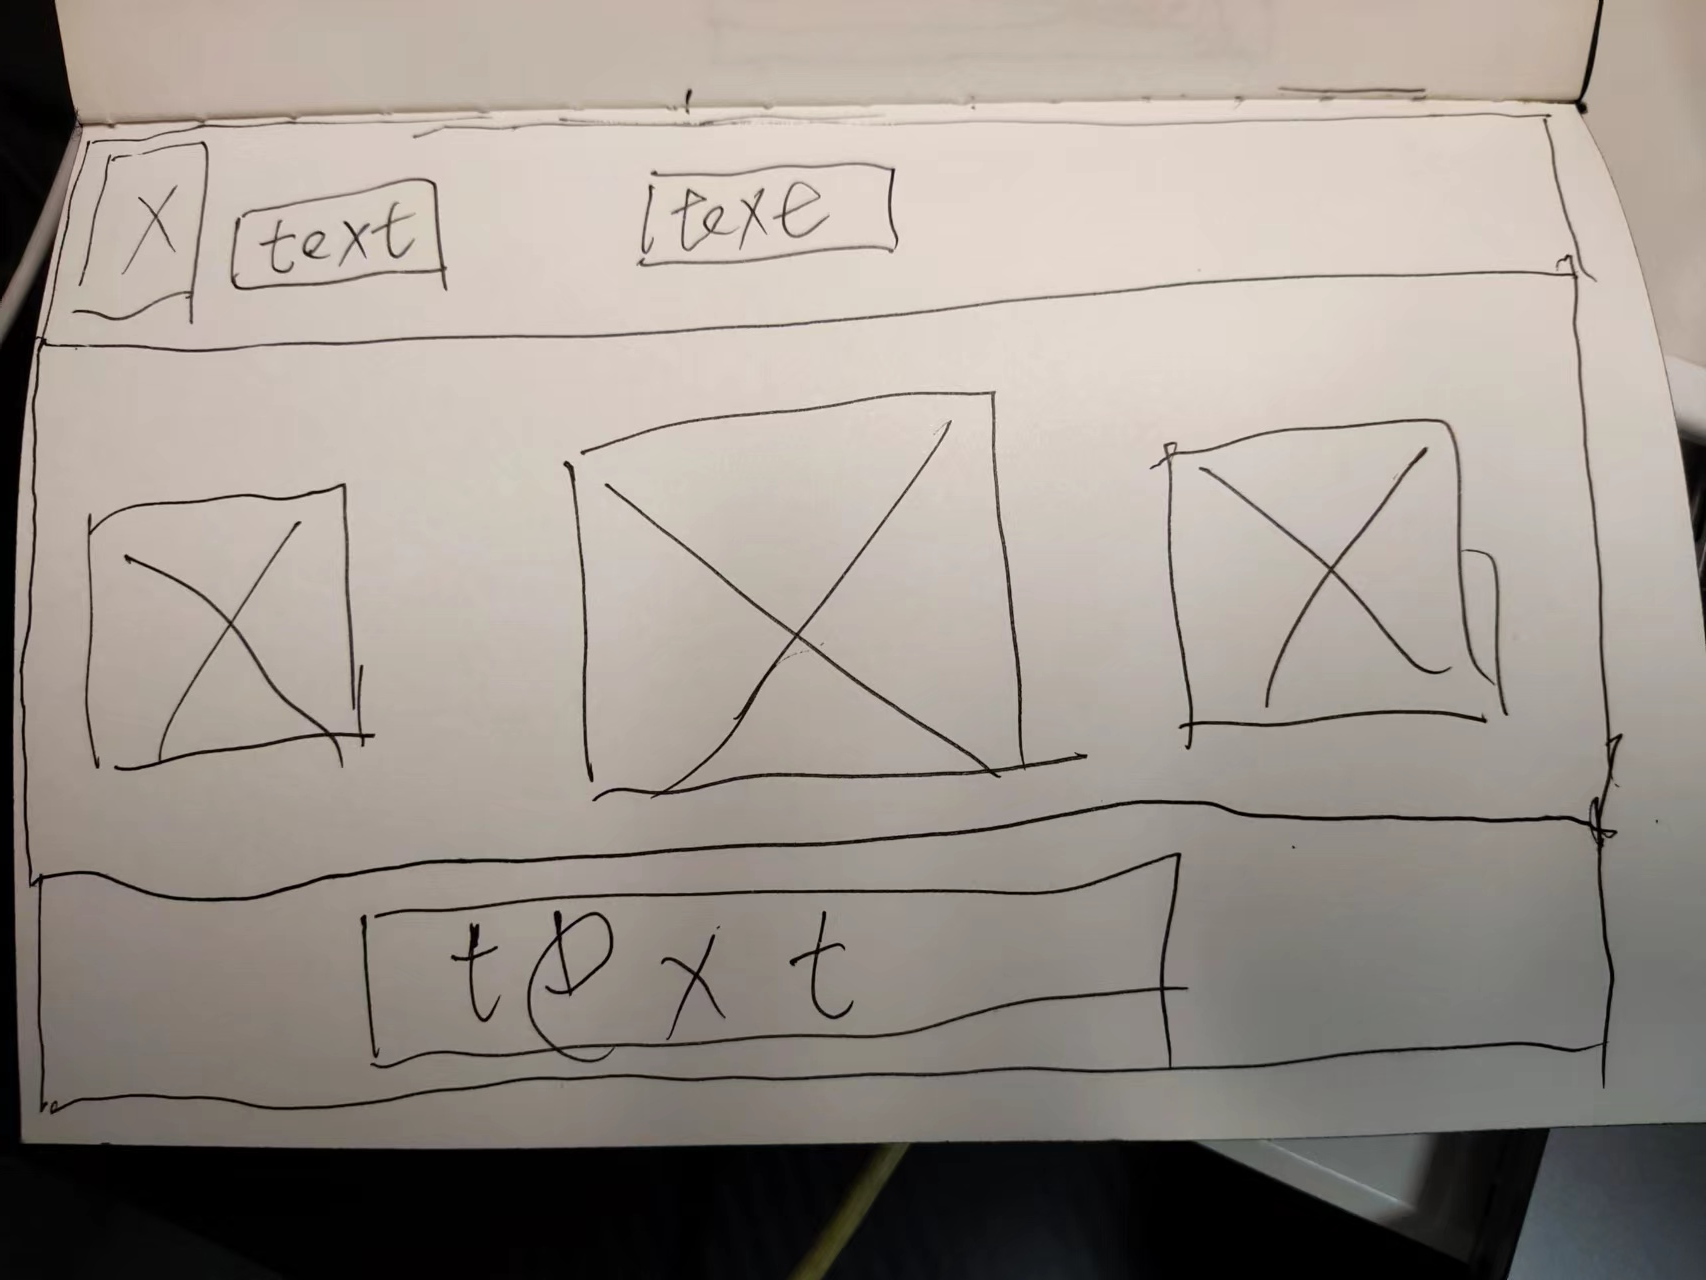 X text text
text